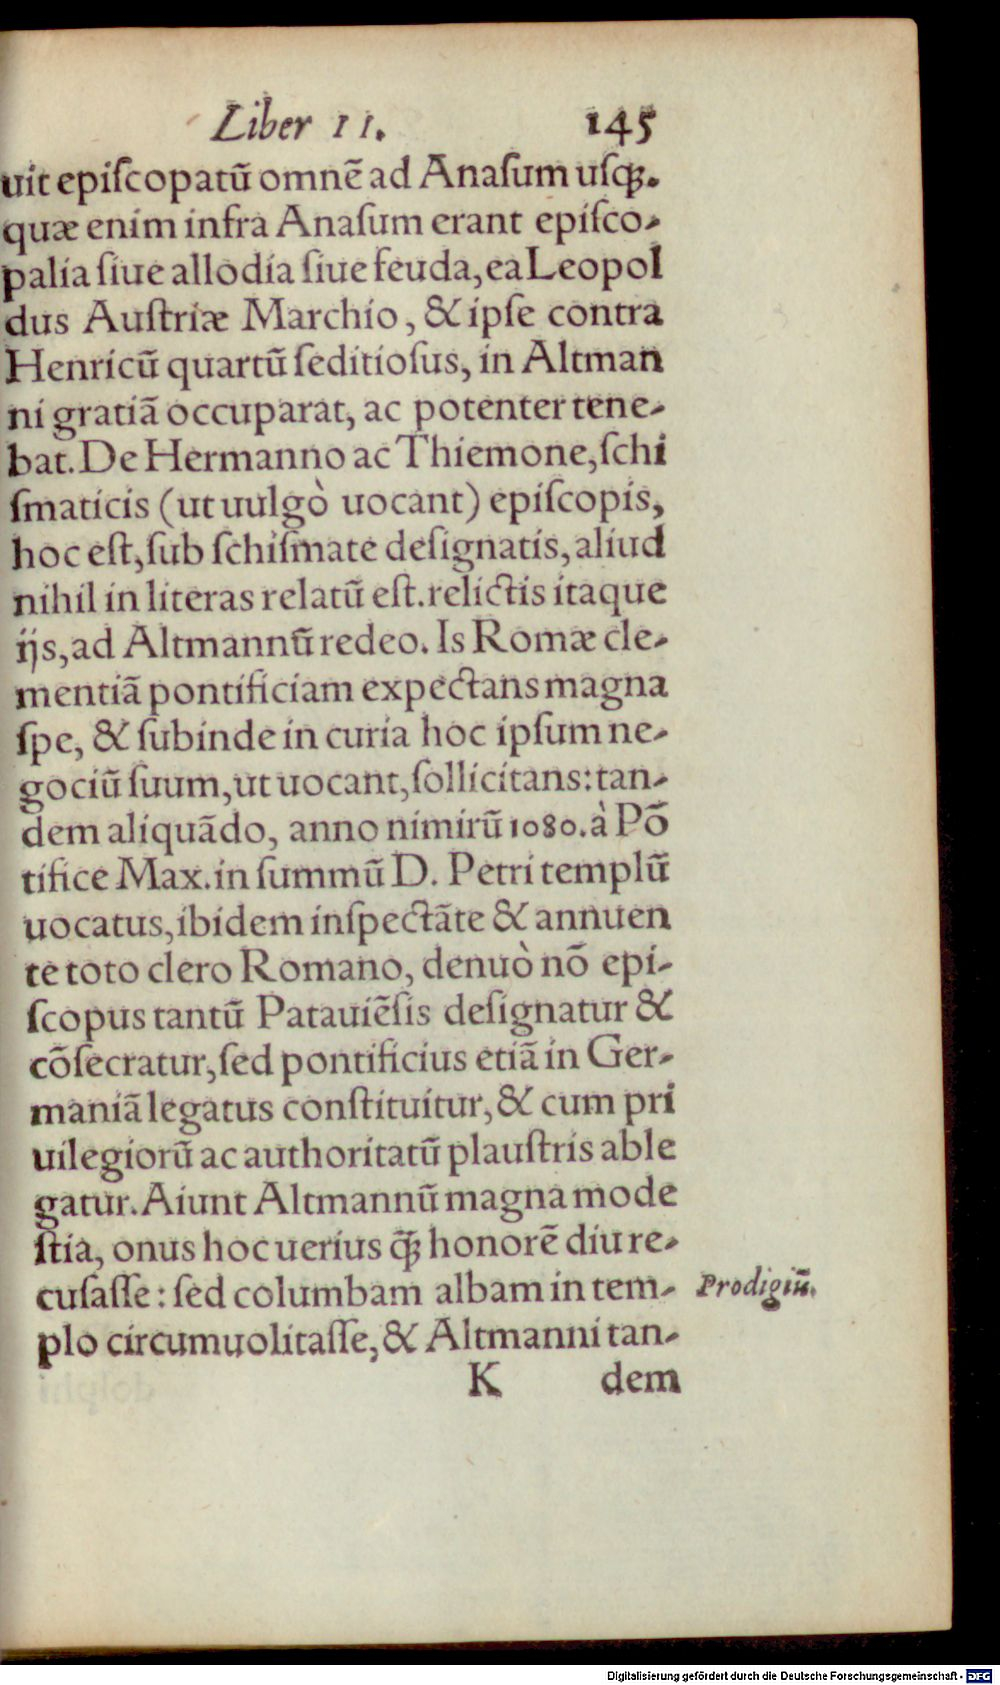 Liber II. 145
uit episcopatũ omnẽ ad Anasum usq́ꝫ.
quæ enim infra Anasum erant episco-
palia siue allodia siue feuda, ea Leopol
dus Austriæ Marchio, & ipse contra
Henricũ quartũ seditiosus, in Altman
ni gratiã occuparat, ac potenter tene-
bat. De Hermanno ac Thiemone, schi
smaticis (ut uulgò uocant) episcopis,
hoc est, sub schismate designatis, aliud
nihil in literas relatũ est. relictis itaque
ijs, ad Altmannũ redeo. Is Romæ cle-
mentiã pontificiam expectans magna
spe, & subinde in curia hoc ipsum ne-
gociũ suum, ut uocant, sollicitans: tan-
dem aliquãdo, anno nimirũ 1080. à Põ
tifice Max. in summũ D. Petri templũ
uocatus, ibidem inspectãte & annuen
te toto clero Romano, denuò nõ epi-
scopus tantũ Patauiẽsis designatur &
cõsecratur, sed pontificius etiã in Ger-
maniã legatus constituitur, & cum pri
uilegiorũ ac authoritatũ plaustris able
gatur. Aiunt Altmannũ magna mode
stia, onus hoc uerius q̃ꝫ honorẽ diu re-
cusasse: sed columbam albam in tem- Prodigiũ.
plo circumuolitasse, & Altmanni tan-
K dem
Digitalisierung gefördert durch die Deutsche Forschungsgemeinschaft - DFG